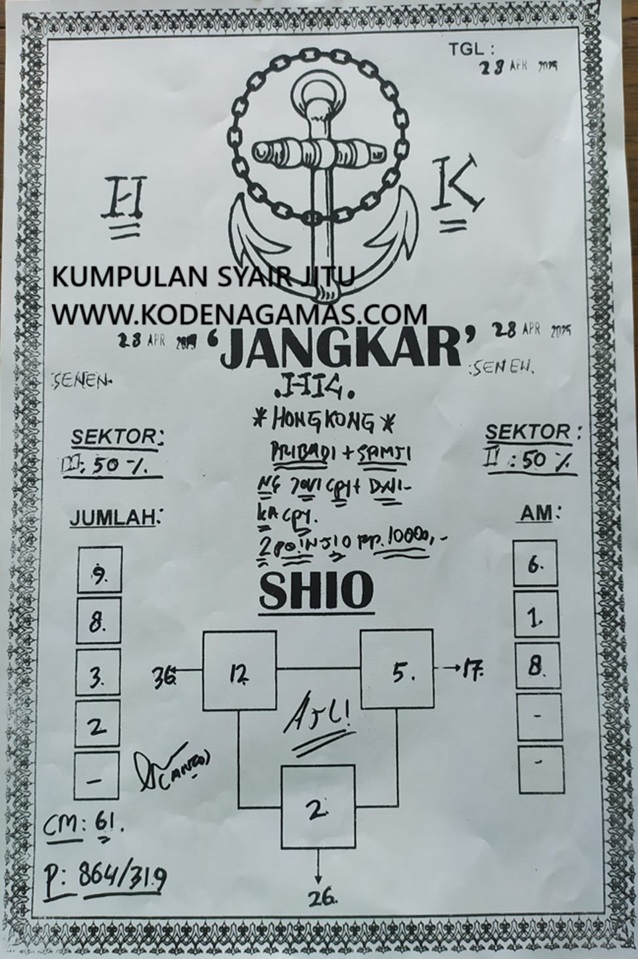 TGL :
28 APR 2025
H
K
KUMPULAN SYAIR JITU
WWW.KODENAGAMAS.COM
28 APR
'JANGKAR'
28 APR 2025
SENEN.
SENEN.
* HONGKONG *
SEKTOR:
50 %.
PRIBADI + SAMJI
SEKTOR :
II : 50 %
JUMLAH:
AM:
2 POIN JIO RP. 10000,-
SHIO
9.
8.
3.
2
-
6.
1.
8.
-
-
36
12.
5.
17.
Asli!
2.
26.
CM: 61.
P: 864/319